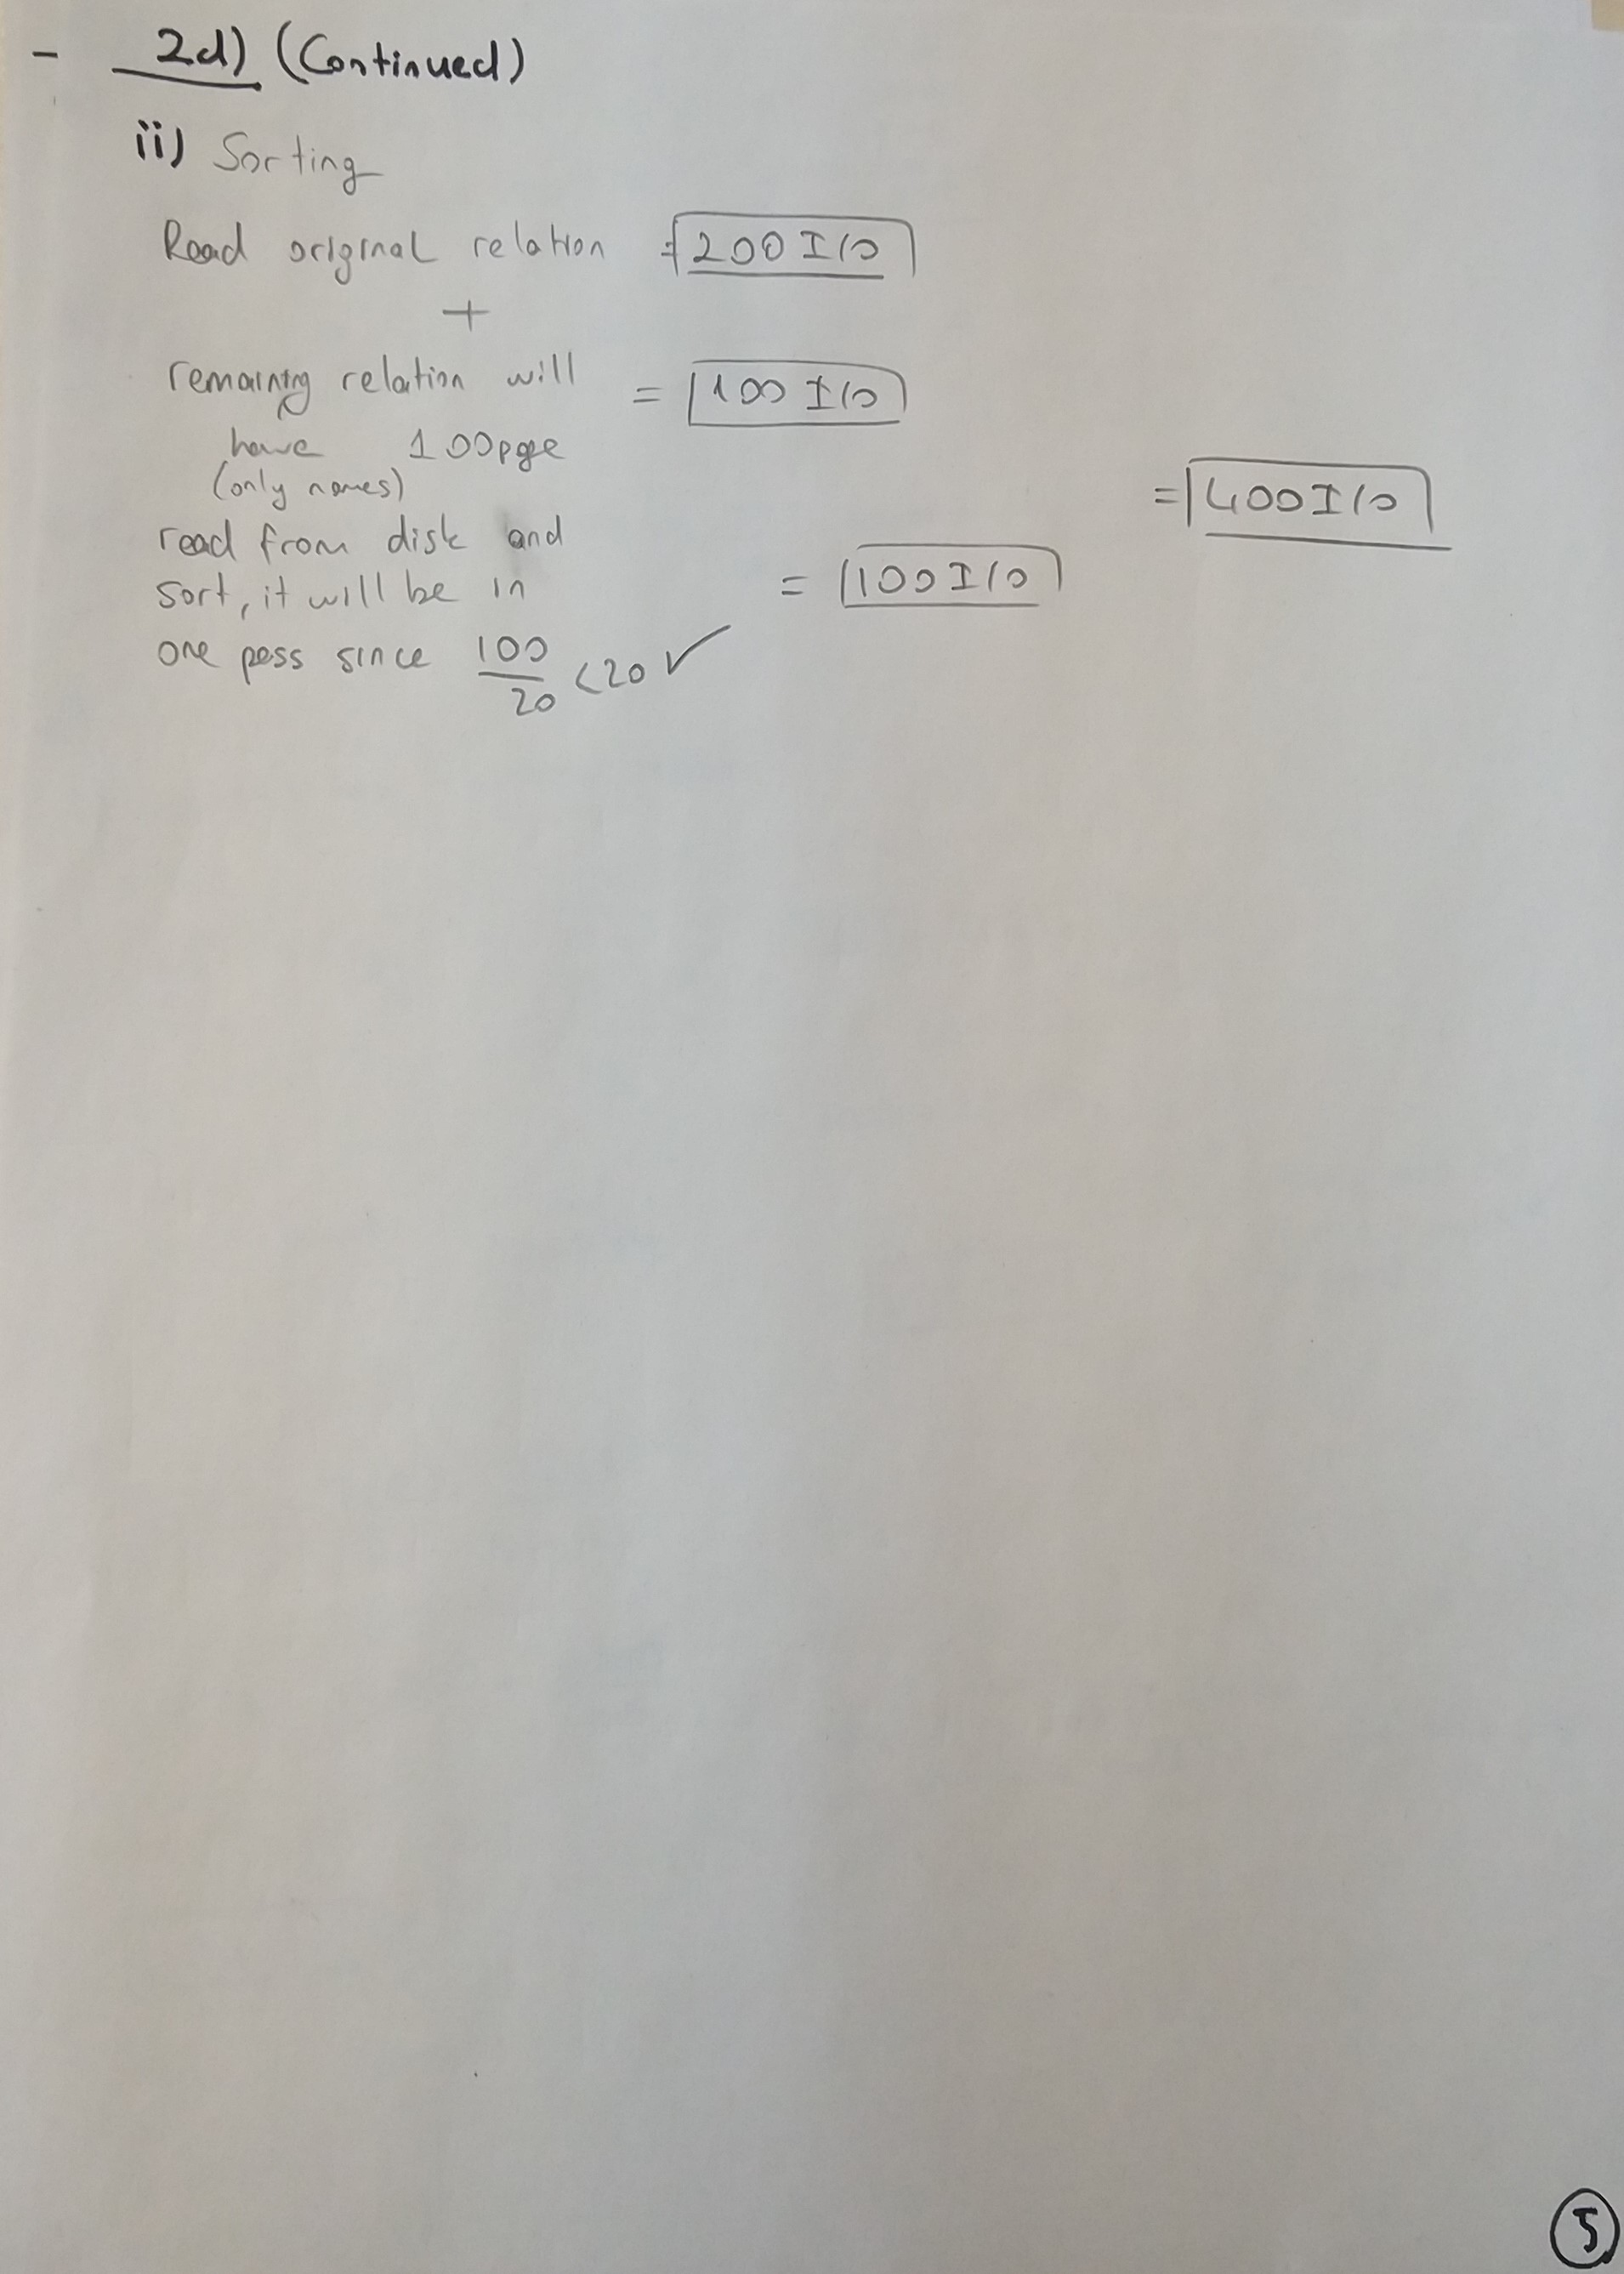 - 2d) (Continued)
ii) Sorting
Read original relation = 200 I/O
+
remaining relation will = 100 I/O
have 100page
(only names)
= 400 I/O
read from disk and
sort, it will be in = 100 I/O
one pass since 100/20 < 20 ✓
5